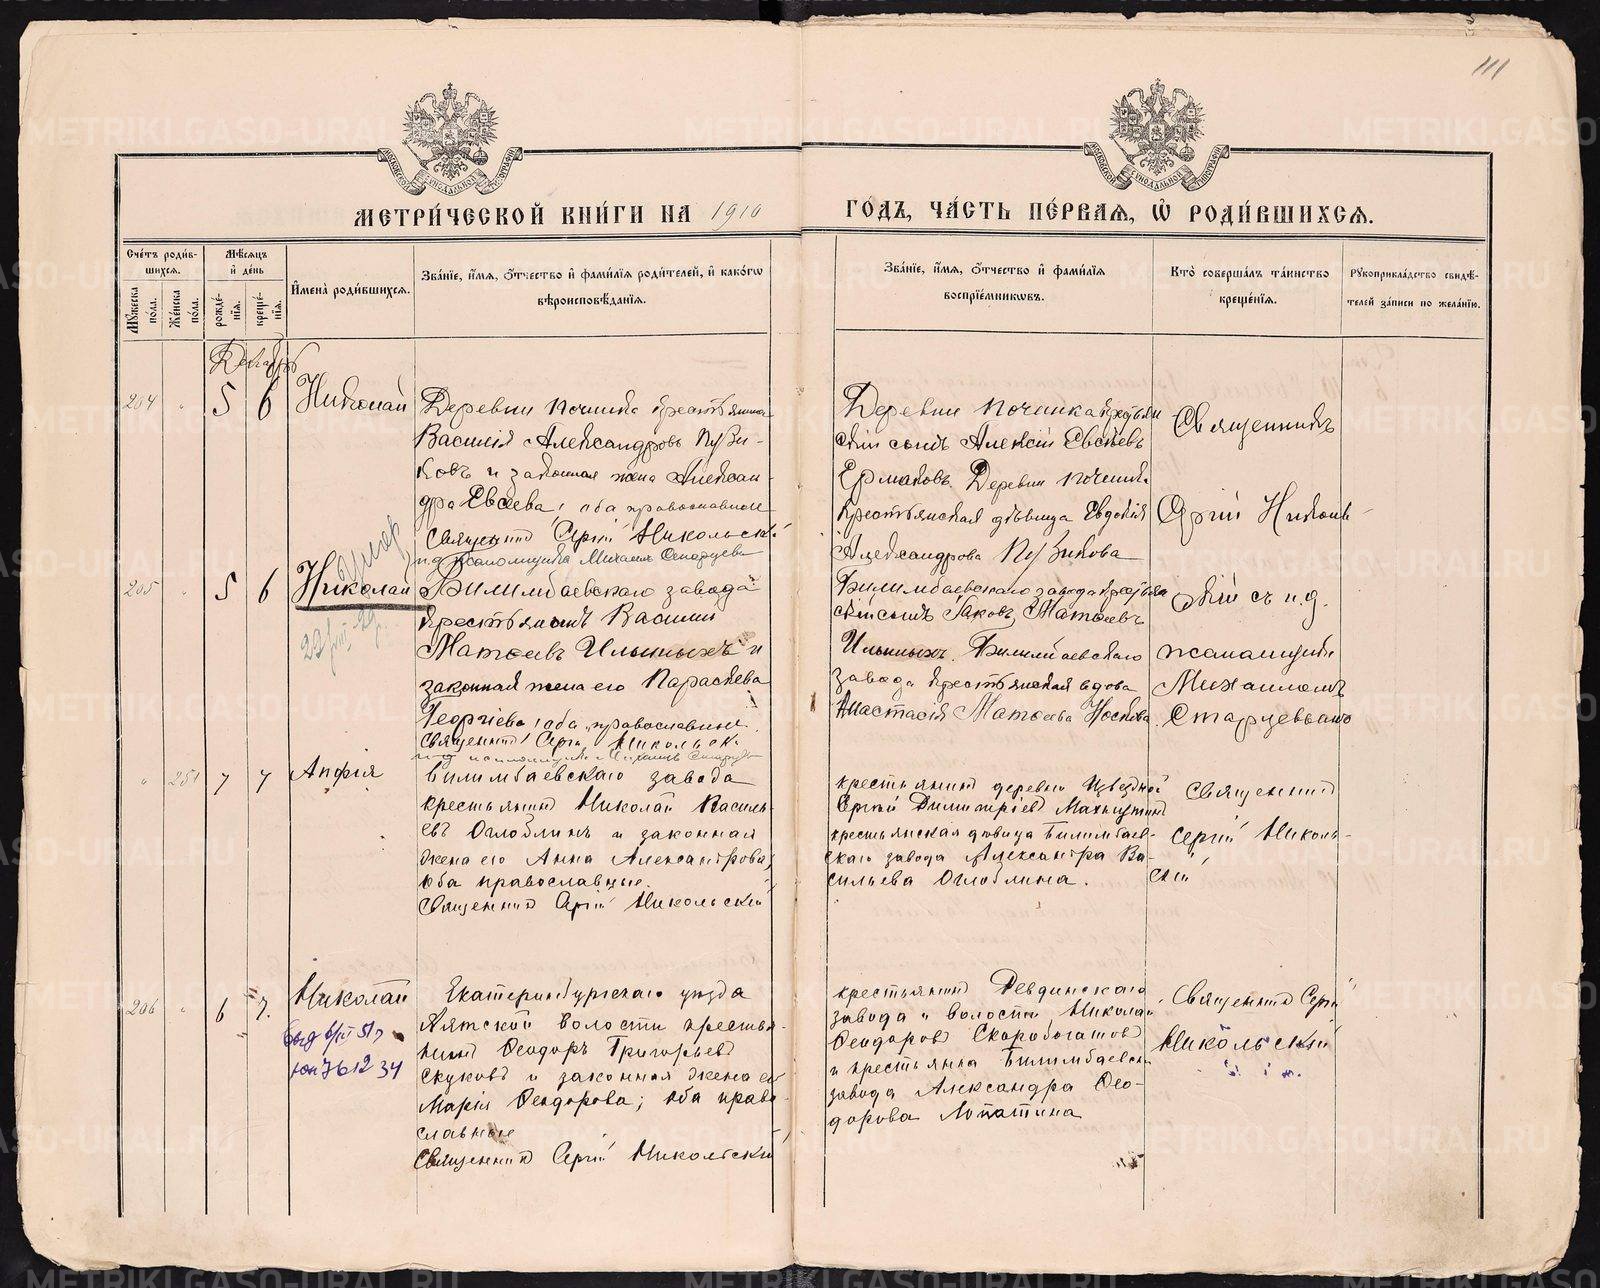 111
МЕТРИ́ЧЕСКОЙ КНИ́ГИ НА 1910
ГО́ДЪ, ЧА́СТЬ ПЕ́РВАѦ, Ѡ҆ РОДИ́ВШИХСѦ.
Сче́тъ роди́в-
шихсѧ.
Мꙋ́жеска
по́ла.
Же́нска
по́ла.
Мѣ́сѧцъ
и҆ де́нь
рожде́-
нїѧ.
креще́-
нїѧ.
И҆мена̀ роди́вшихсѧ.
Зва́нїе, и҆́мѧ, ѻ҆́тчество и҆ фами́лїѧ роди́телей, и҆ како́гѡ
вѣроисповѣ́данїѧ.
Зва́нїе, и҆́мѧ, ѻ҆́тчество и҆ фами́лїѧ
воспрїе́мникѡвъ.
Кто̀ соверша́лъ та́инство
креще́нїѧ.
Рꙋкоприкла́дство свидѣ́-
телей за́писи по жела́нїю.
Декабрь
204 " 5 6 Николай
Деревни Починка крестьянинъ
Василій Александровъ Пузи-
ковъ и законная жена Алексан-
дра Евсѣева, оба православные
Священникъ Сергій Никольскій
п.д. псаломщика Михаилъ Старцевъ
Деревни Починка крестьян
скій сынъ Алексій Евсѣевъ
Ермаковъ. Деревни Починка
крестьянская дѣвица Евдокія
Александрова Пузикова
Священникъ
Сергій Николь-
скій съ и.д.
псаломщика
Михаиломъ
Старцевымъ
205 " 5 6 Николай
умер
Билимбаевскаго завода
крестьянинъ Василій
Матѳеевъ Ильиныхъ и
законная жена его Параскева
Георгіева, оба православные.
Священникъ Сергій Никольскій
Билимбаевскаго завода крестьян
скій сынъ Іаковъ Матѳеевъ
Ильиныхъ. Билимбаевскаго
завода крестьянская вдова
Анастасія Матѳеева Носкова.
" 251 7 7 Анфія
Билимбаевскаго завода
крестьянинъ Николай Василь-
евъ Оглоблинъ и законная
жена его Анна Александрова,
оба православные.
Священникъ Сергій Никольскій
крестьянинъ деревни Извѣздной
Сергѣй Димитріевъ Махнуткинъ
крестьянская дѣвица Билимбаев-
скаго завода Александра Ва-
сильева Оглоблина.
Священникъ
Сергій Николь-
скій
206 " 6 7. Николай
Екатеринбургскаго уѣзда
Аятской волости крестья-
нинъ Ѳеодоръ Григорьевъ
Скуковъ и законная жена его
Марія Ѳеодорова; оба право-
славные
Священникъ Сергій Никольскій
крестьянинъ Ревдинскаго
завода и волости Николай
Ѳеодоровъ Скоробогатовъ
и крестьянка Билимбаевскаго
завода Александра Ѳео-
дорова Лопатина
Священникъ Сергій
Никольскій